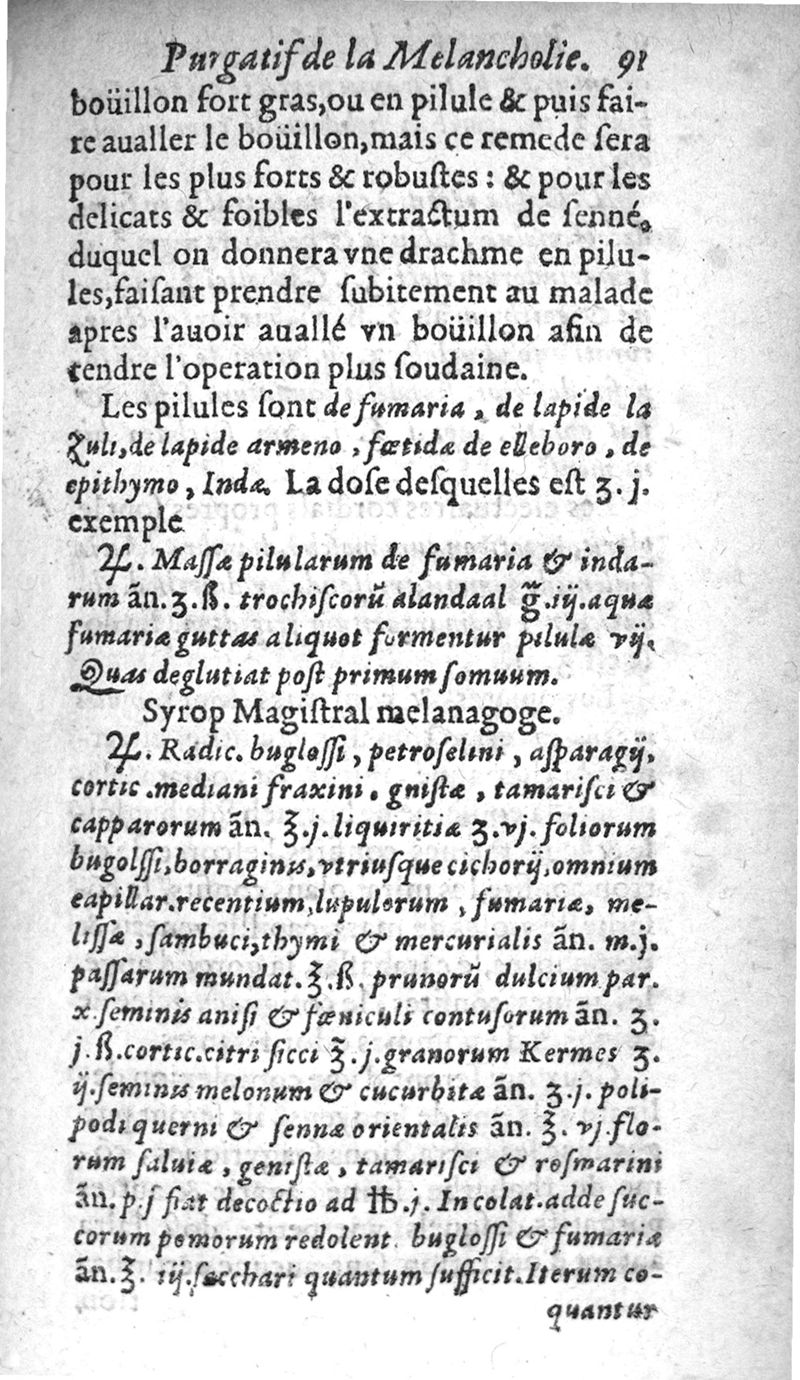 Purgatif de la Melancholie. 91
boüillon fort gras,ou en pilule & puis fai-
re aualler le boüillon,mais ce remede ſera
pour les plus forts & robuſtes : & pour les
delicats & foibles l'extractum de ſenné,
duquel on donnera vne drachme en pilu-
les,faiſant prendre ſubitement au malade
apres l'auoir auallé vn boüillon afin de
rendre l'operation plus ſoudaine.
Les pilules ſont de fumaria , de lapide la
Zuli,de lapide armeno , fœtidæ de elleboro , de
epithymo , Indæ. La doſe deſquelles eſt ʒ. j.
exemple
♃. Maſſæ pilularum de fumaria & inda-
rum ãn. ʒ. ß. trochiſcorũ alandaal g̃.iij.aquæ
fumariæ guttas aliquot formentur pilulæ vij.
Quas deglutiat poſt primum ſomuum.
Syrop Magiſtral melanagoge.
♃. Radic. bugloſſi , petroſelini , aſparagij,
cortic .mediani fraxini , gniſtæ , tamariſci &
capparorum ãn. ℥.j.liquiritiæ ʒ.vj. foliorum
bugolſſi,borraginis,vtriuſque cichorij,omnium
eapillar.recentium,lupulorum , fumariæ, me-
liſſæ , ſambuci,thymi & mercurialis ãn. m.j.
paſſarum mundat.℥.ß. prunorũ dulcium par.
x.ſeminis aniſi & fœniculi contuſorum ãn. ʒ.
j.ß.cortic.citri ſicci ℥.j.granorum Kermes ʒ.
ij.ſeminis melonum & cucurbitæ ãn. ʒ.j. poli-
podi querni & ſennæ orientalis ãn. ℥. vj.flo-
rum ſaluiæ , geniſtæ , tamariſci & roſmarini
ãn. p.j fiat decoctio ad ℔.j. In colat.adde ſuc-
corum pomorum redolent. bugloſſi & fumariæ
ãn.℥. iij.ſacchari quantum ſufficit.Iterum co-
quantur